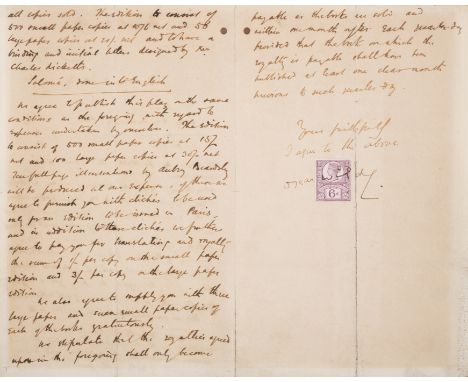 all copies sold. The edition to consist of
500 small paper copies at net and 50
large paper copies at net and to have a
binding and initial letters designed by
Charles Ricketts.
Salomé, done into English
We agree to publish this play on the same
conditions as the foregoing with regard to
expenses undertaken by ourselves. The edition
to consist of 500 small paper copies at 15/-
net and 100 large paper copies at 30/- net
Ten full page illustrations by Aubrey Beardsley
will be produced at our expense, of these we
agree to furnish you with clichés to be used
only for an edition to be issued in Paris,
and in addition to these clichés we further
agree to pay you for translating and royalty
the sum of 1/- per copy on the small paper
edition and 3/- per copy on the large paper
edition
We also agree to supply you with three
large paper and seven small paper copies of
each of the books gratuitously.
We stipulate that the royalties agreed
upon in the foregoing shall only become
payable as the books are sold and
within one month after each quarter day
provided that the book on which the
royalty is payable shall have been
published at least one clear month
previous to such quarter day.
Yours faithfully
I agree to the above
Oscar Wilde
6D